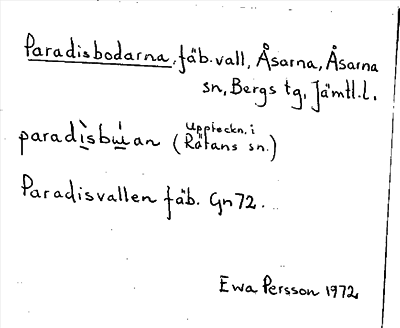 Paradisbodarna, fäb.vall, Åsarna, Åsarna
sn, Bergs tg, Jämtl.l.
Uppteckn. i
paradìsbu̇an (Rätans sn.)
Paradisvallen fäb. Gn 72.
Ewa Persson 1972